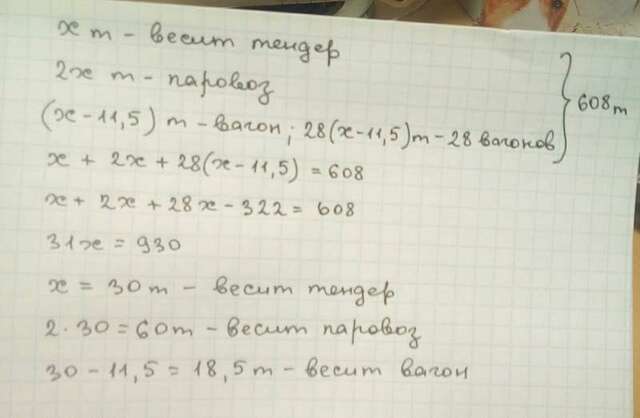 x т - весит тендер
2x т - паровоз
(x - 11,5) т - вагон; 28(x-11,5)т - 28 вагонов } 608т
x + 2x + 28(x - 11,5) = 608
x + 2x + 28x - 322 = 608
31x = 930
x = 30 т - весит тендер
2 · 30 = 60 т - весит паровоз
30 - 11,5 = 18,5 т - весит вагон